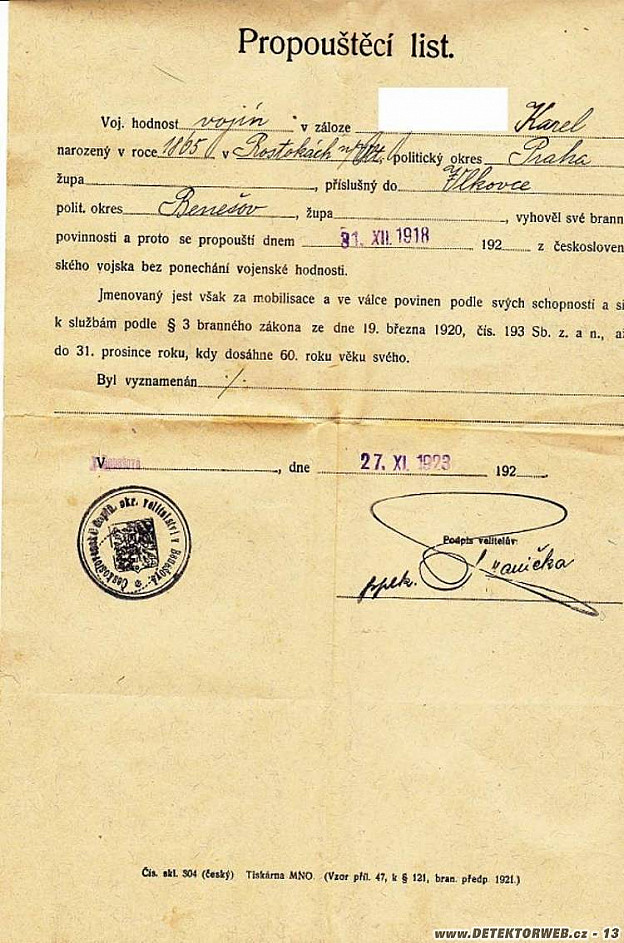 Propouštěcí list.
Voj. hodnost vojín v záloze Karel
narozený v roce 1865 v Roztokách politický okres Praha
župa , příslušný do Vlkovce
polit. okres Benešov , župa , vyhověl své brann
povinnosti a proto se propouští dnem 31. XII. 1918 192 z českosloven
ského vojska bez ponechání vojenské hodnosti.
Jmenovaný jest však za mobilisace a ve válce povinen podle svých schopností a si
k službám podle § 3 branného zákona ze dne 19. března 1920, čís. 193 Sb. z. a n., až
do 31. prosince roku, kdy dosáhne 60. roku věku svého.
Byl vyznamenán ./.
V Benešově , dne 27. XI. 1923 192
Podpis velitelův:
pplk.
Čís. skl. 304 (český) Tiskárna MNO. (Vzor příl. 47, k § 121, bran. předp. 1921.)
www.DETEKTORWEB.cz - 13